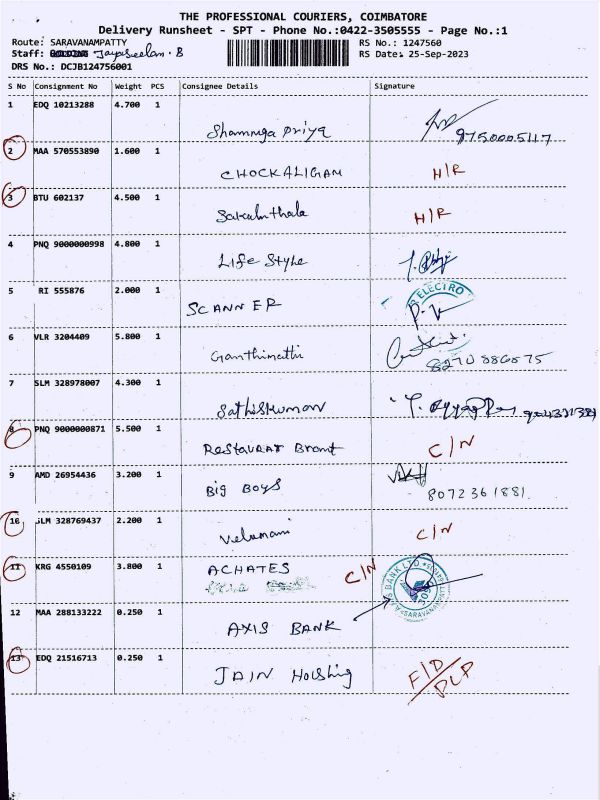 THE PROFESSIONAL COURIERS, COIMBATORE
Delivery Runsheet - SPT - Phone No.:0422-3505555 - Page No.:1
Route: SARAVANAMPATTY RS No.: 1247560
Staff: Jayaseelan. B RS Date: 25-Sep-2023
DRS No.: DCJB124756001
S No Consignment No Weight PCS Consignee Details Signature
1 EDQ 10213288 4.700 1
Shanmuga Priya 9750005117
2 MAA 570553890 1.600 1
CHOCKALIGAM H/R
3 BTU 602137 4.500 1
Sakunthala H/R
4 PNQ 9000000998 4.800 1
Life Style
5 RI 555876 2.000 1
SCANNER ELECTRO
6 VLR 3204409 5.800 1
Ganthimathi 8270886875
7 SLM 328978007 4.300 1
Sathiskumar
8 PNQ 9000000871 5.500 1
Restaurat Bramt C/N
9 AMD 26954436 3.200 1
Big Boys 8072361881
10 SLM 328769437 2.200 1
Velumani C/N
11 KRG 4550109 3.800 1 ACHATES C/N
BANK LTD. SARAVANAMPATTI
12 MAA 288133222 0.250 1
AXIS BANK
13 EDQ 21516713 0.250 1
JAIN Housing F/D
DLP